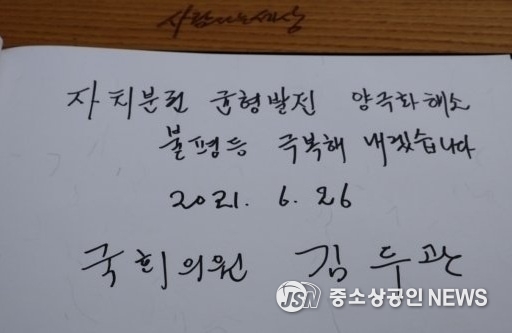 사람사는세상
자치분권 균형발전 양극화해소
불평등 극복해 내겠습니다
2021. 6. 26
국회의원 김두관
JSN 중소상공인 NEWS